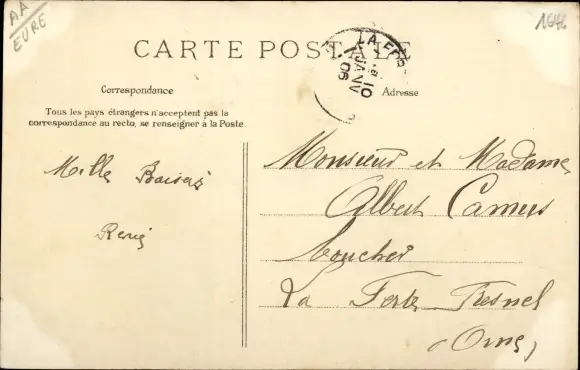 AA
EURE
1646
CARTE POSTALE
LA FER
10
JANV
06
Correspondance
Adresse
Tous les pays étrangers n'acceptent pas la
correspondance au recto, se renseigner à la Poste.
Mille Baisers
René
Monsieur et Madame
Albert Camus
boucher
La Ferte Fresnel
(Orne)